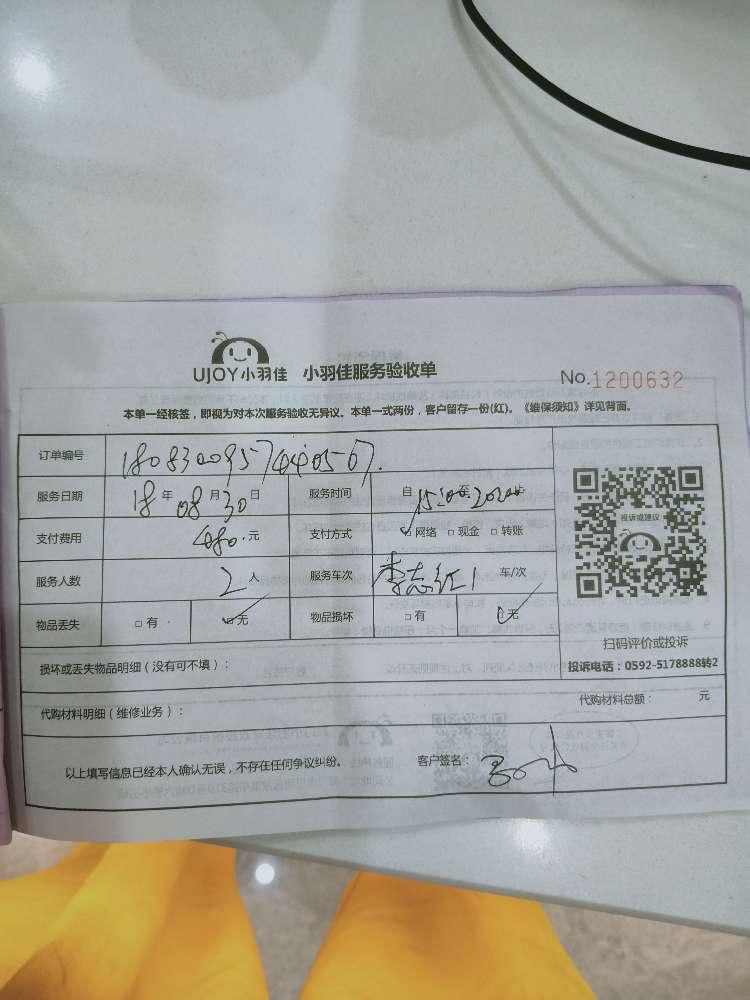 UJOY小羽佳 小羽佳服务验收单 No.1200632
本单一经核签，即视为对本次服务验收无异议。本单一式两份，客户留存一份(红)。《维保须知》详见背面。
订单编号
服务日期 18年08月30日 服务时间 自15:00至20:00止
支付费用 480.元 支付方式 ✓网络 □现金 □转账
服务人数 2人 服务车次 李志红1 车/次
物品丢失 □有 ✓无 物品损坏 □有 ✓无
投诉或建议
扫码评价或投诉
投诉电话：0592-5178888转2
损坏或丢失物品明细（没有可不填）：
代购材料明细（维修业务）： 代购材料总额： 元
以上填写信息已经本人确认无误，不存在任何争议纠纷。 客户签名：